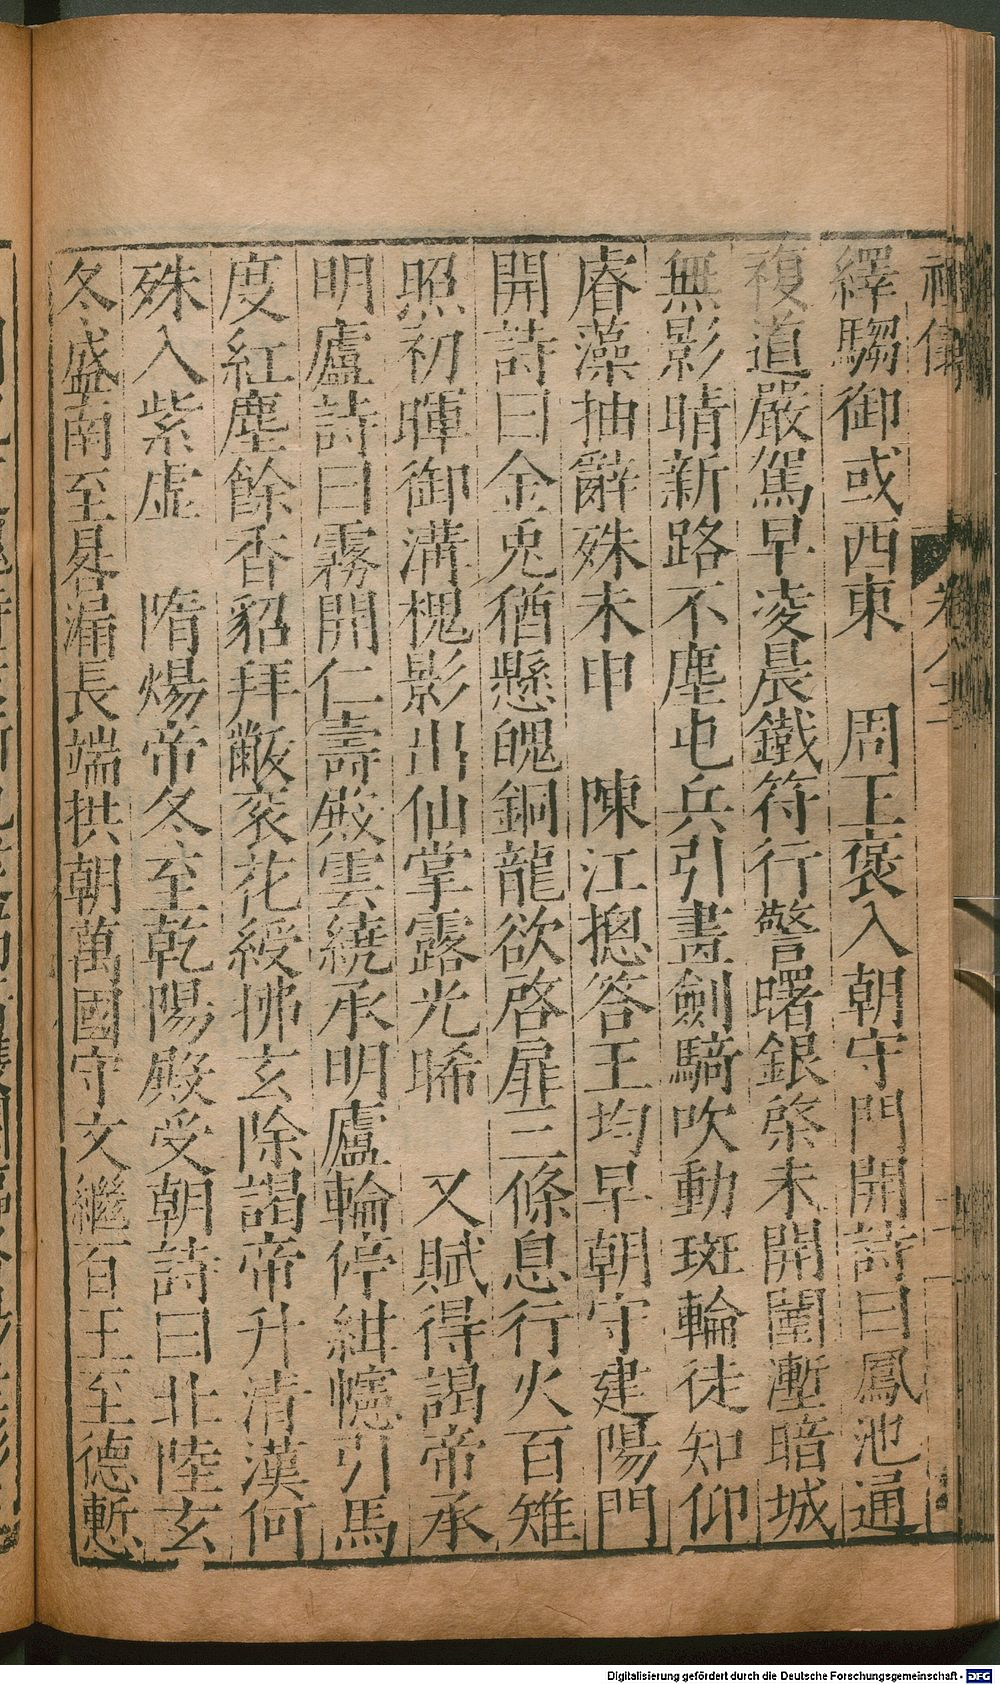 繹騶御或西東　周王褒入朝守門開詩曰鳳池通
複道嚴駕早淩晨鐵符行警曙銀棨未開闉漸暗城
無影晴新路不塵屯兵引畫劍騎吹動斑輪徒知仰
睿藻抽辭殊未申　陳江摠答王均早朝守建陽門
開詩曰金兎猶懸魄銅龍欲啓扉三條息行火百雉
照初暉御溝槐影出仙掌露光晞　又賦得謁帝承
明廬詩曰霧開仁壽殿雲繞承明廬輪停紺幰引馬
度紅塵餘香貂拜黻衮花綬拂玄除謁帝升清漢何
殊入紫虛　隋煬帝冬至乾陽殿受朝詩曰北陸玄
冬盛南至晷漏長端拱朝萬國守文繼百王至德慙
Digitalisierung gefördert durch die Deutsche Forschungsgemeinschaft - DFG